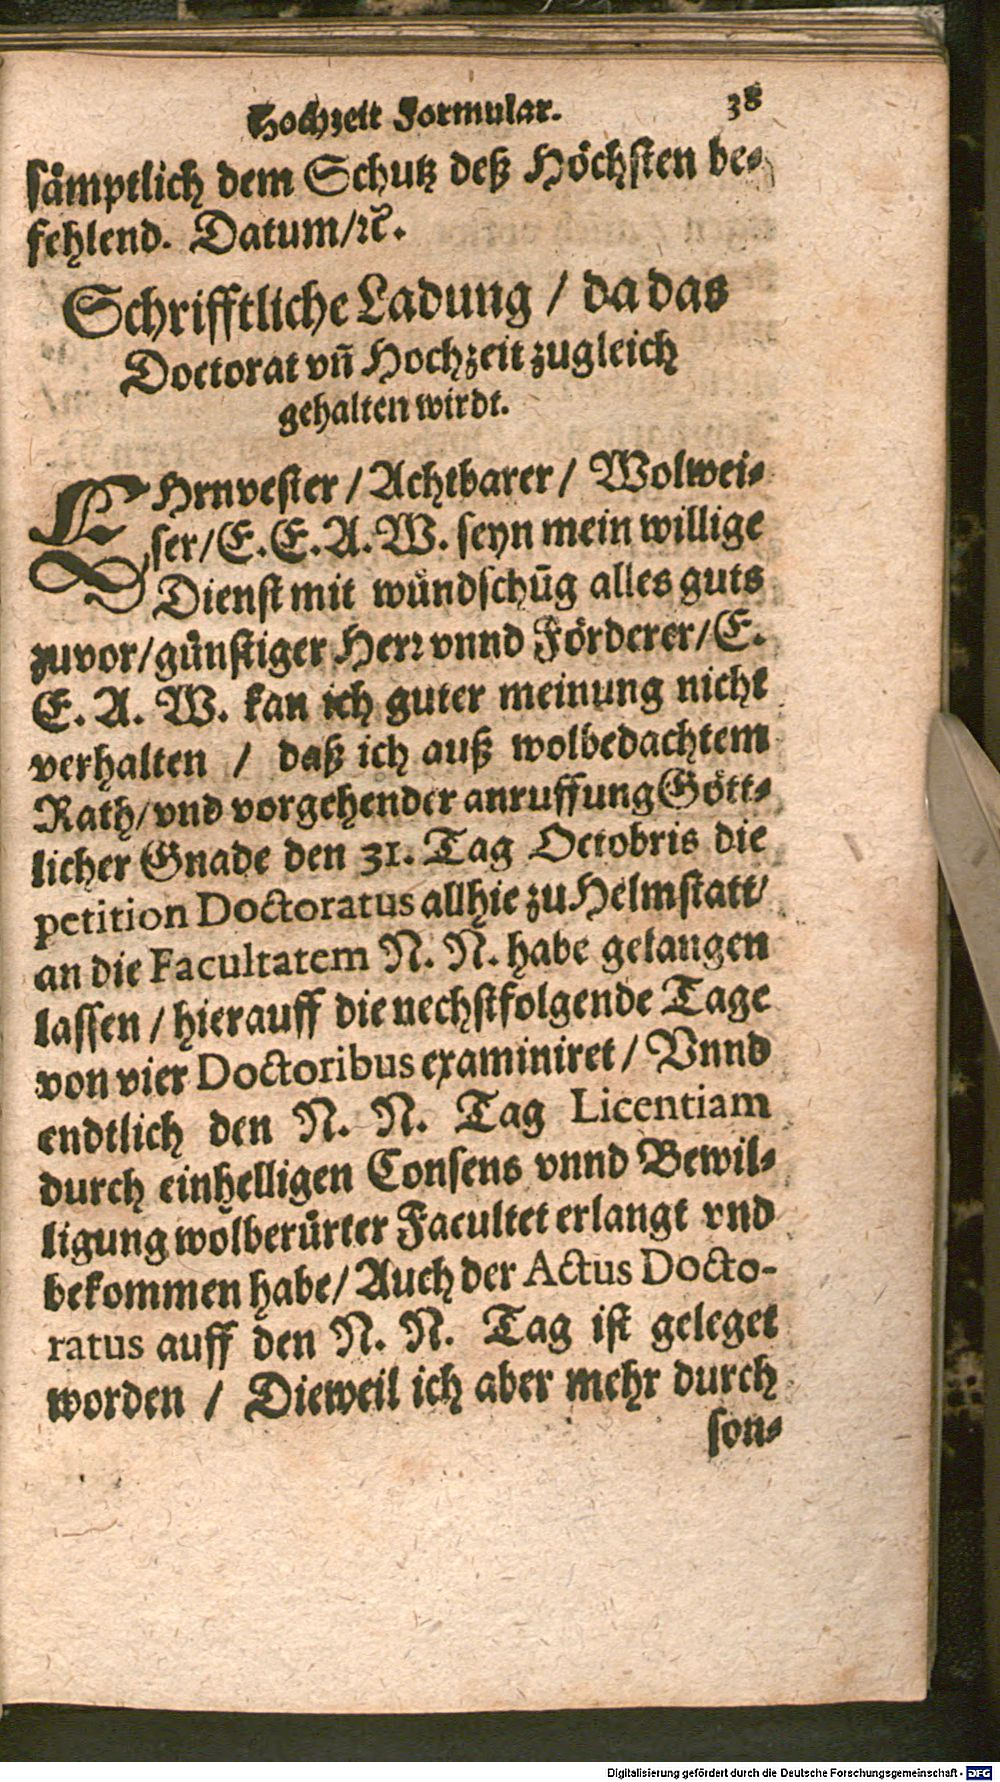 Hochzeit Formular. 38
sämptlich dem Schutz deß Höchsten be-
fehlend. Datum/ꝛc̃.
Schrifftliche Ladung / da das
Doctorat vñ Hochzeit zugleich
gehalten wirdt.
EHrnvester / Achtbarer / Wolwei-
ser/E. E. A. W. seyn mein willige
Dienst mit wůndschũg alles guts
zuvor/gůnstiger Herꝛ vnnd Förderer/E.
E. A. W. kan ich guter meinung nicht
verhalten / daß ich auß wolbedachtem
Rath/vnd vorgehender anruffung Gött-
licher Gnade den 31. Tag Octobris die
petition Doctoratus allhie zu Helmstatt/
an die Facultatem N. N. habe gelangen
lassen / hierauff die nechstfolgende Tage
von vier Doctoribus examiniret / Vnnd
endtlich den N. N. Tag Licentiam
durch einhelligen Consens vnnd Bewil-
ligung wolberůrter Facultet erlangt vnd
bekommen habe/ Auch der Actus Docto-
ratus auff den N. N. Tag ist geleget
worden / Dieweil ich aber mehr durch
son-
Digitalisierung gefördert durch die Deutsche Forschungsgemeinschaft - DFG